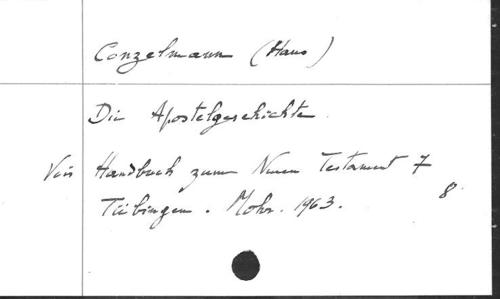 Conzelmann (Hans)
Die Apostelgeschichte.
Voir Handbuch zum Neuen Testament 7
Tübingen. Mohr. 1963.
8